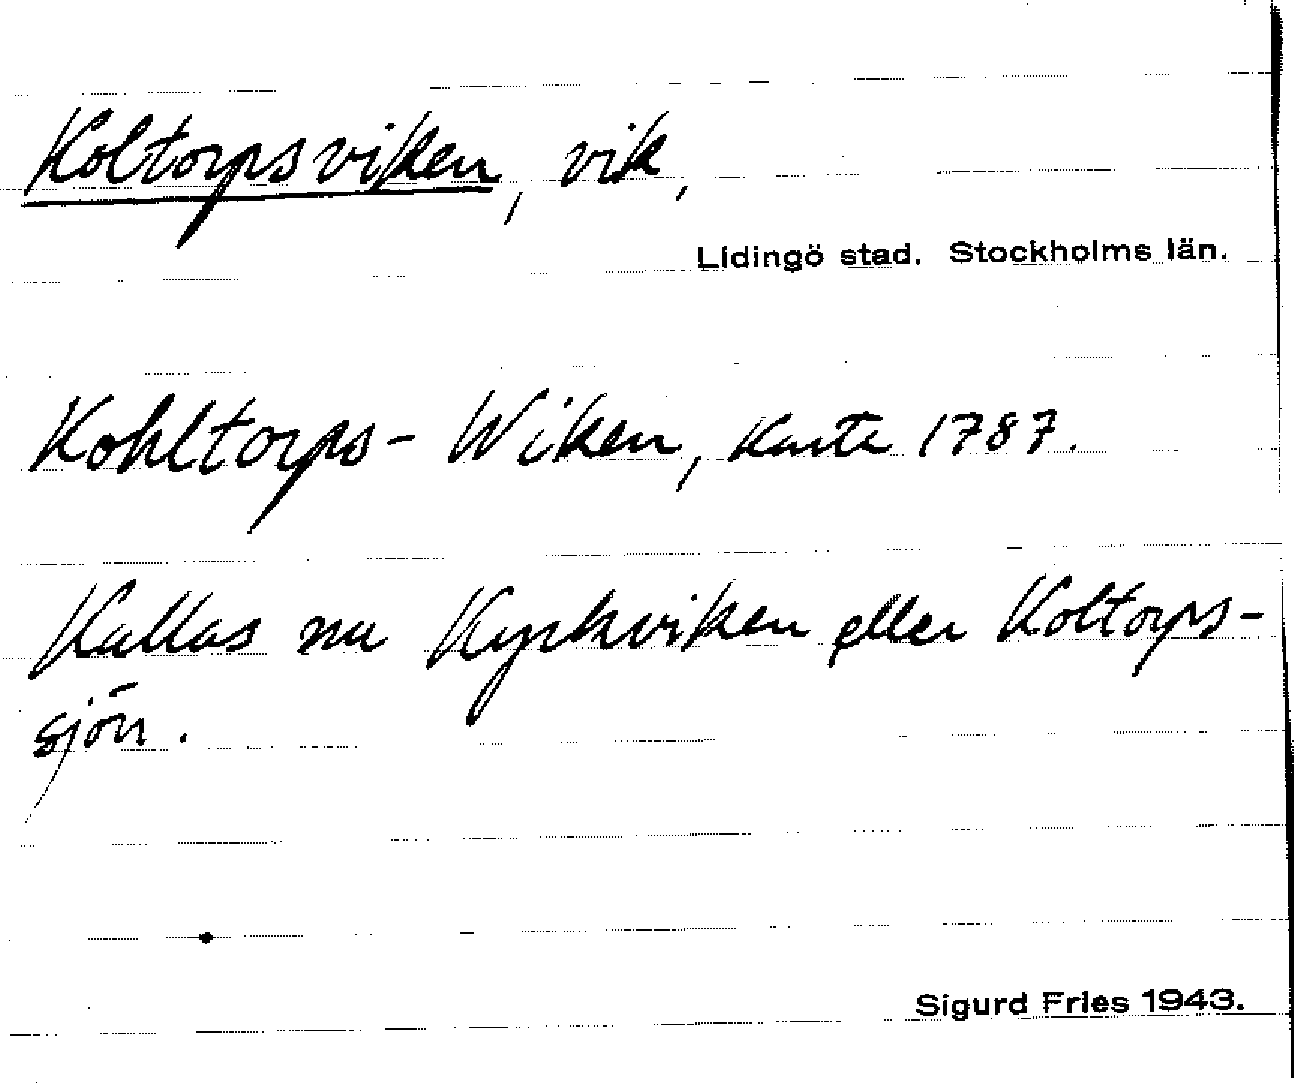 Koltorpsviken, vik,
Lidingö stad. Stockholms län.
Kohltorps-Wiken, Karta 1787.
Kallas nu Kyrkviken eller Koltorps-
sjön.
Sigurd Fries 1943.